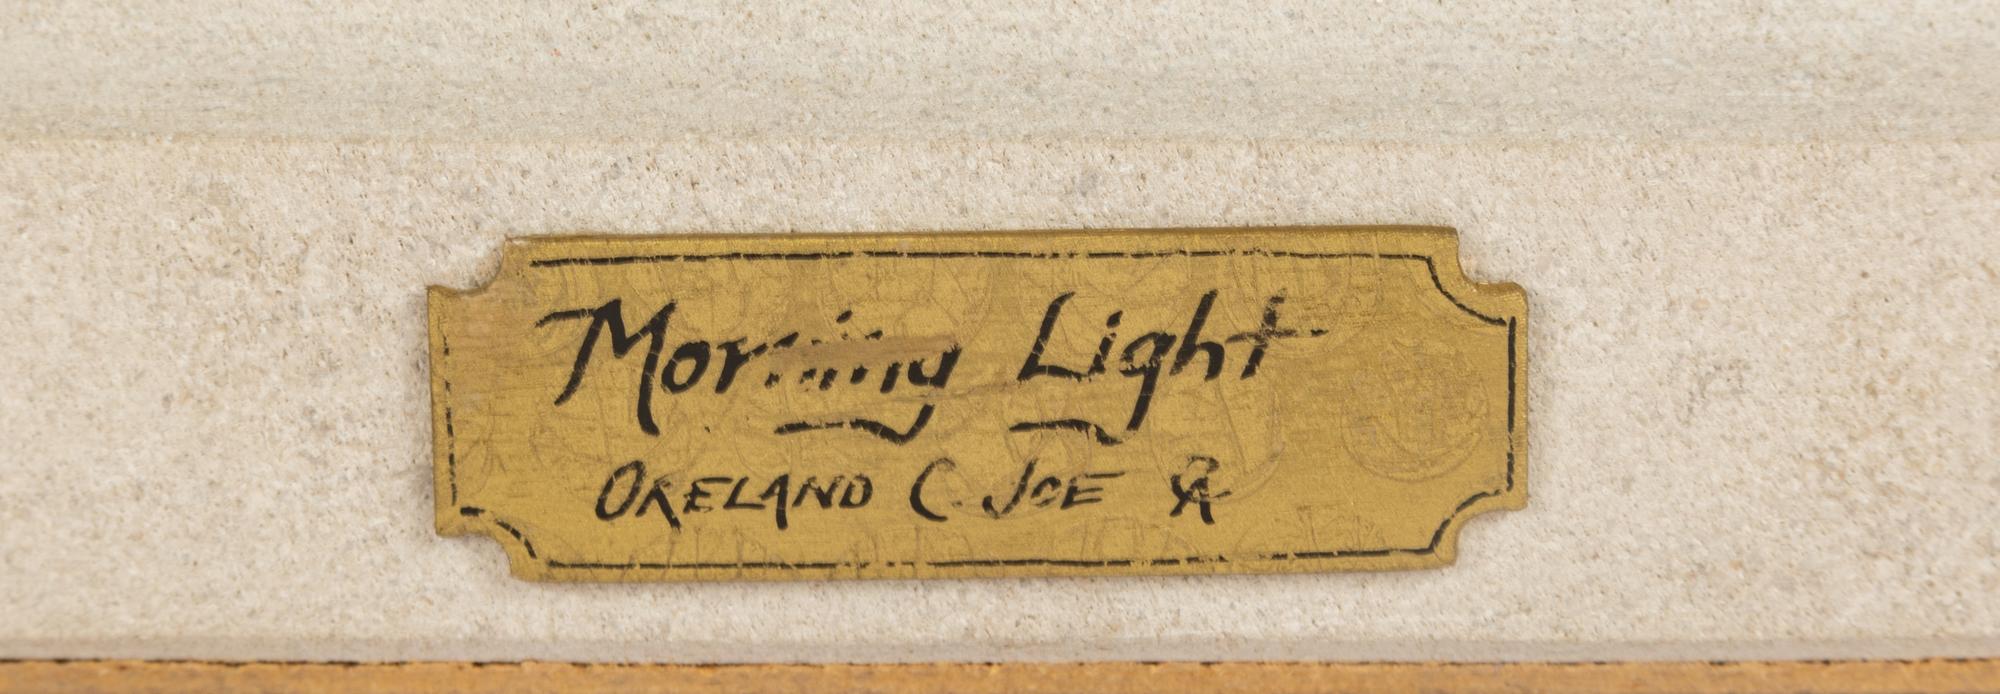 Morning Light
ORELAND C. JOE CA